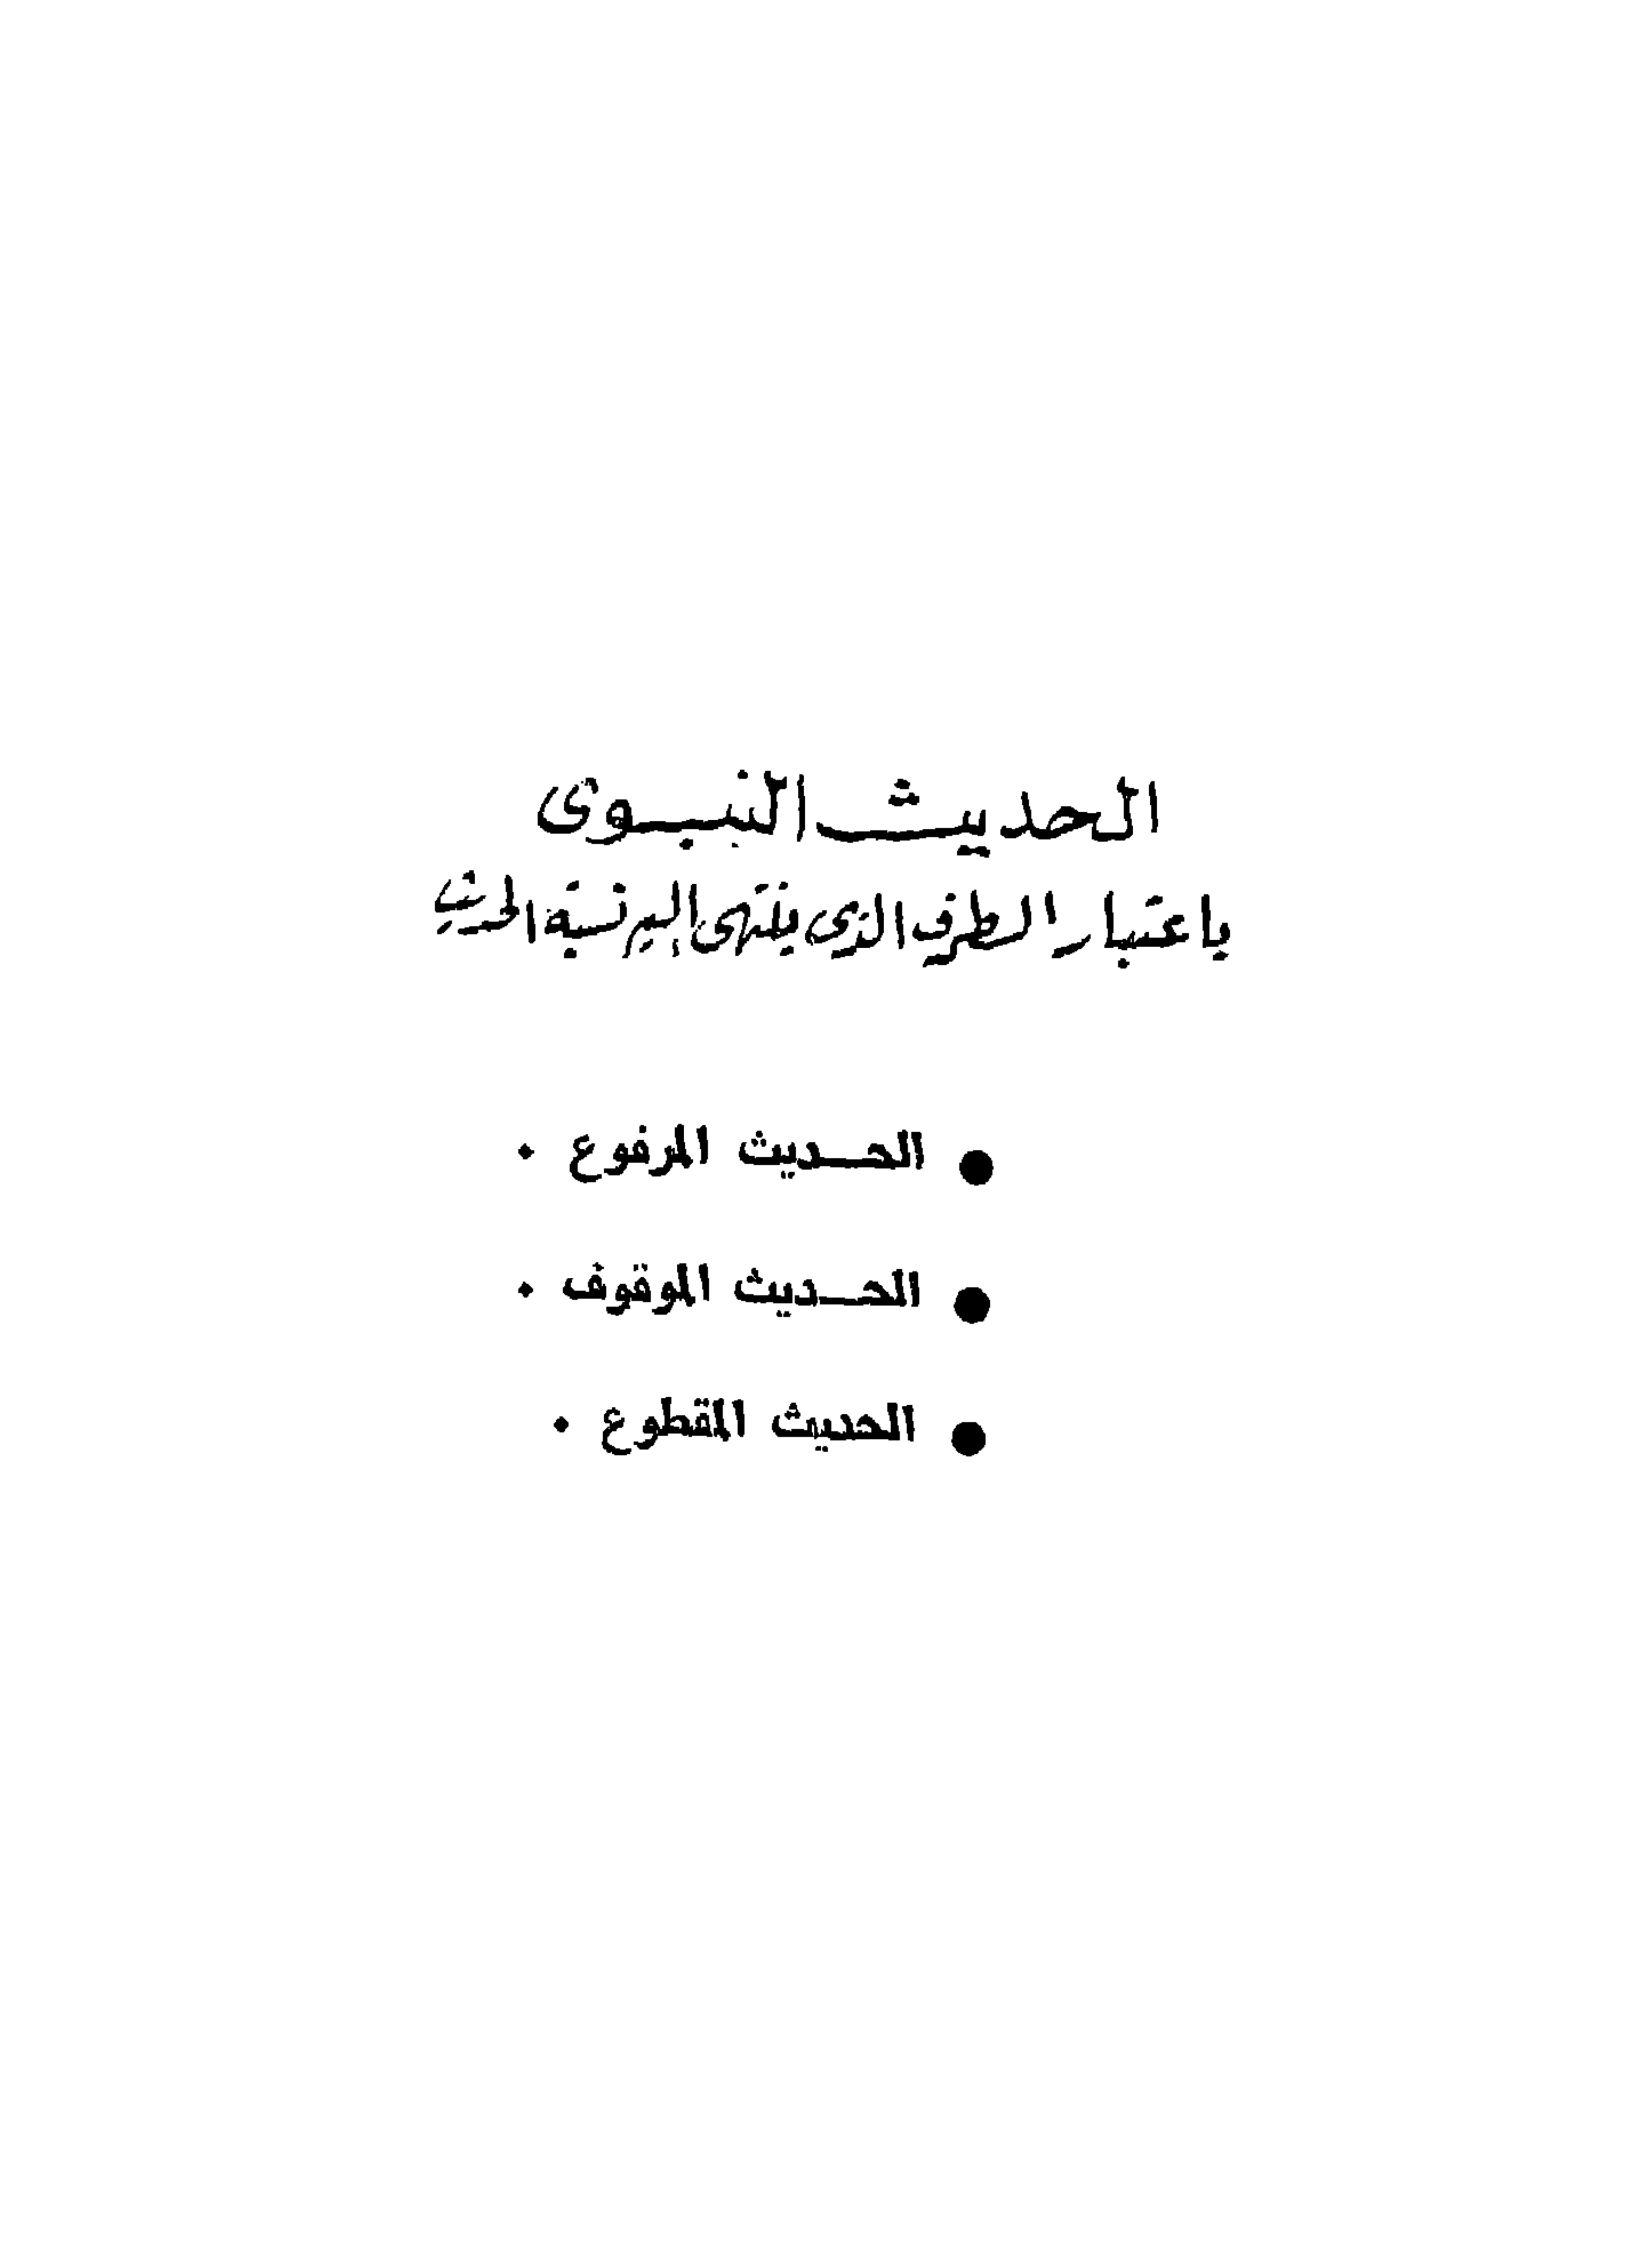 الحديث النبوى
باعتبار الطرف الذى ينتهى إليه نسبة الحديث
● الحديث المرفوع .
● الحديث الموقوف .
● الحديث المقطوع .